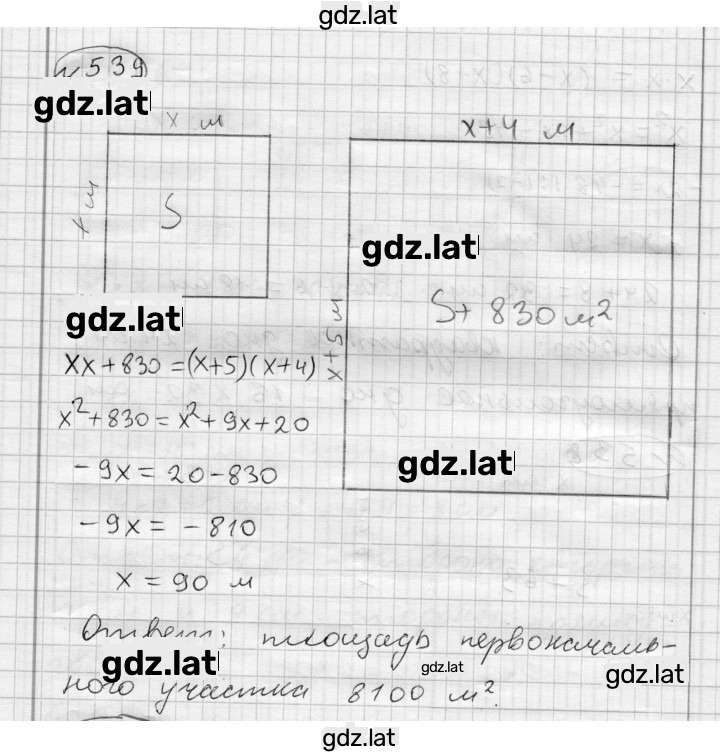 gdz.lat
№539
gdz.lat
x м
x+4 м
x м
S
gdz.lat
S+ 830 м²
x+5 м
gdz.lat
xx+830=(x+5)(x+4)
x²+830=x²+9x+20
gdz.lat
-9x=20-830
-9x=-810
x=90 м
Ответ: площадь первоначаль-
gdz.lat
gdz.lat
gdz.lat
ного участка 8100 м².
gdz.lat